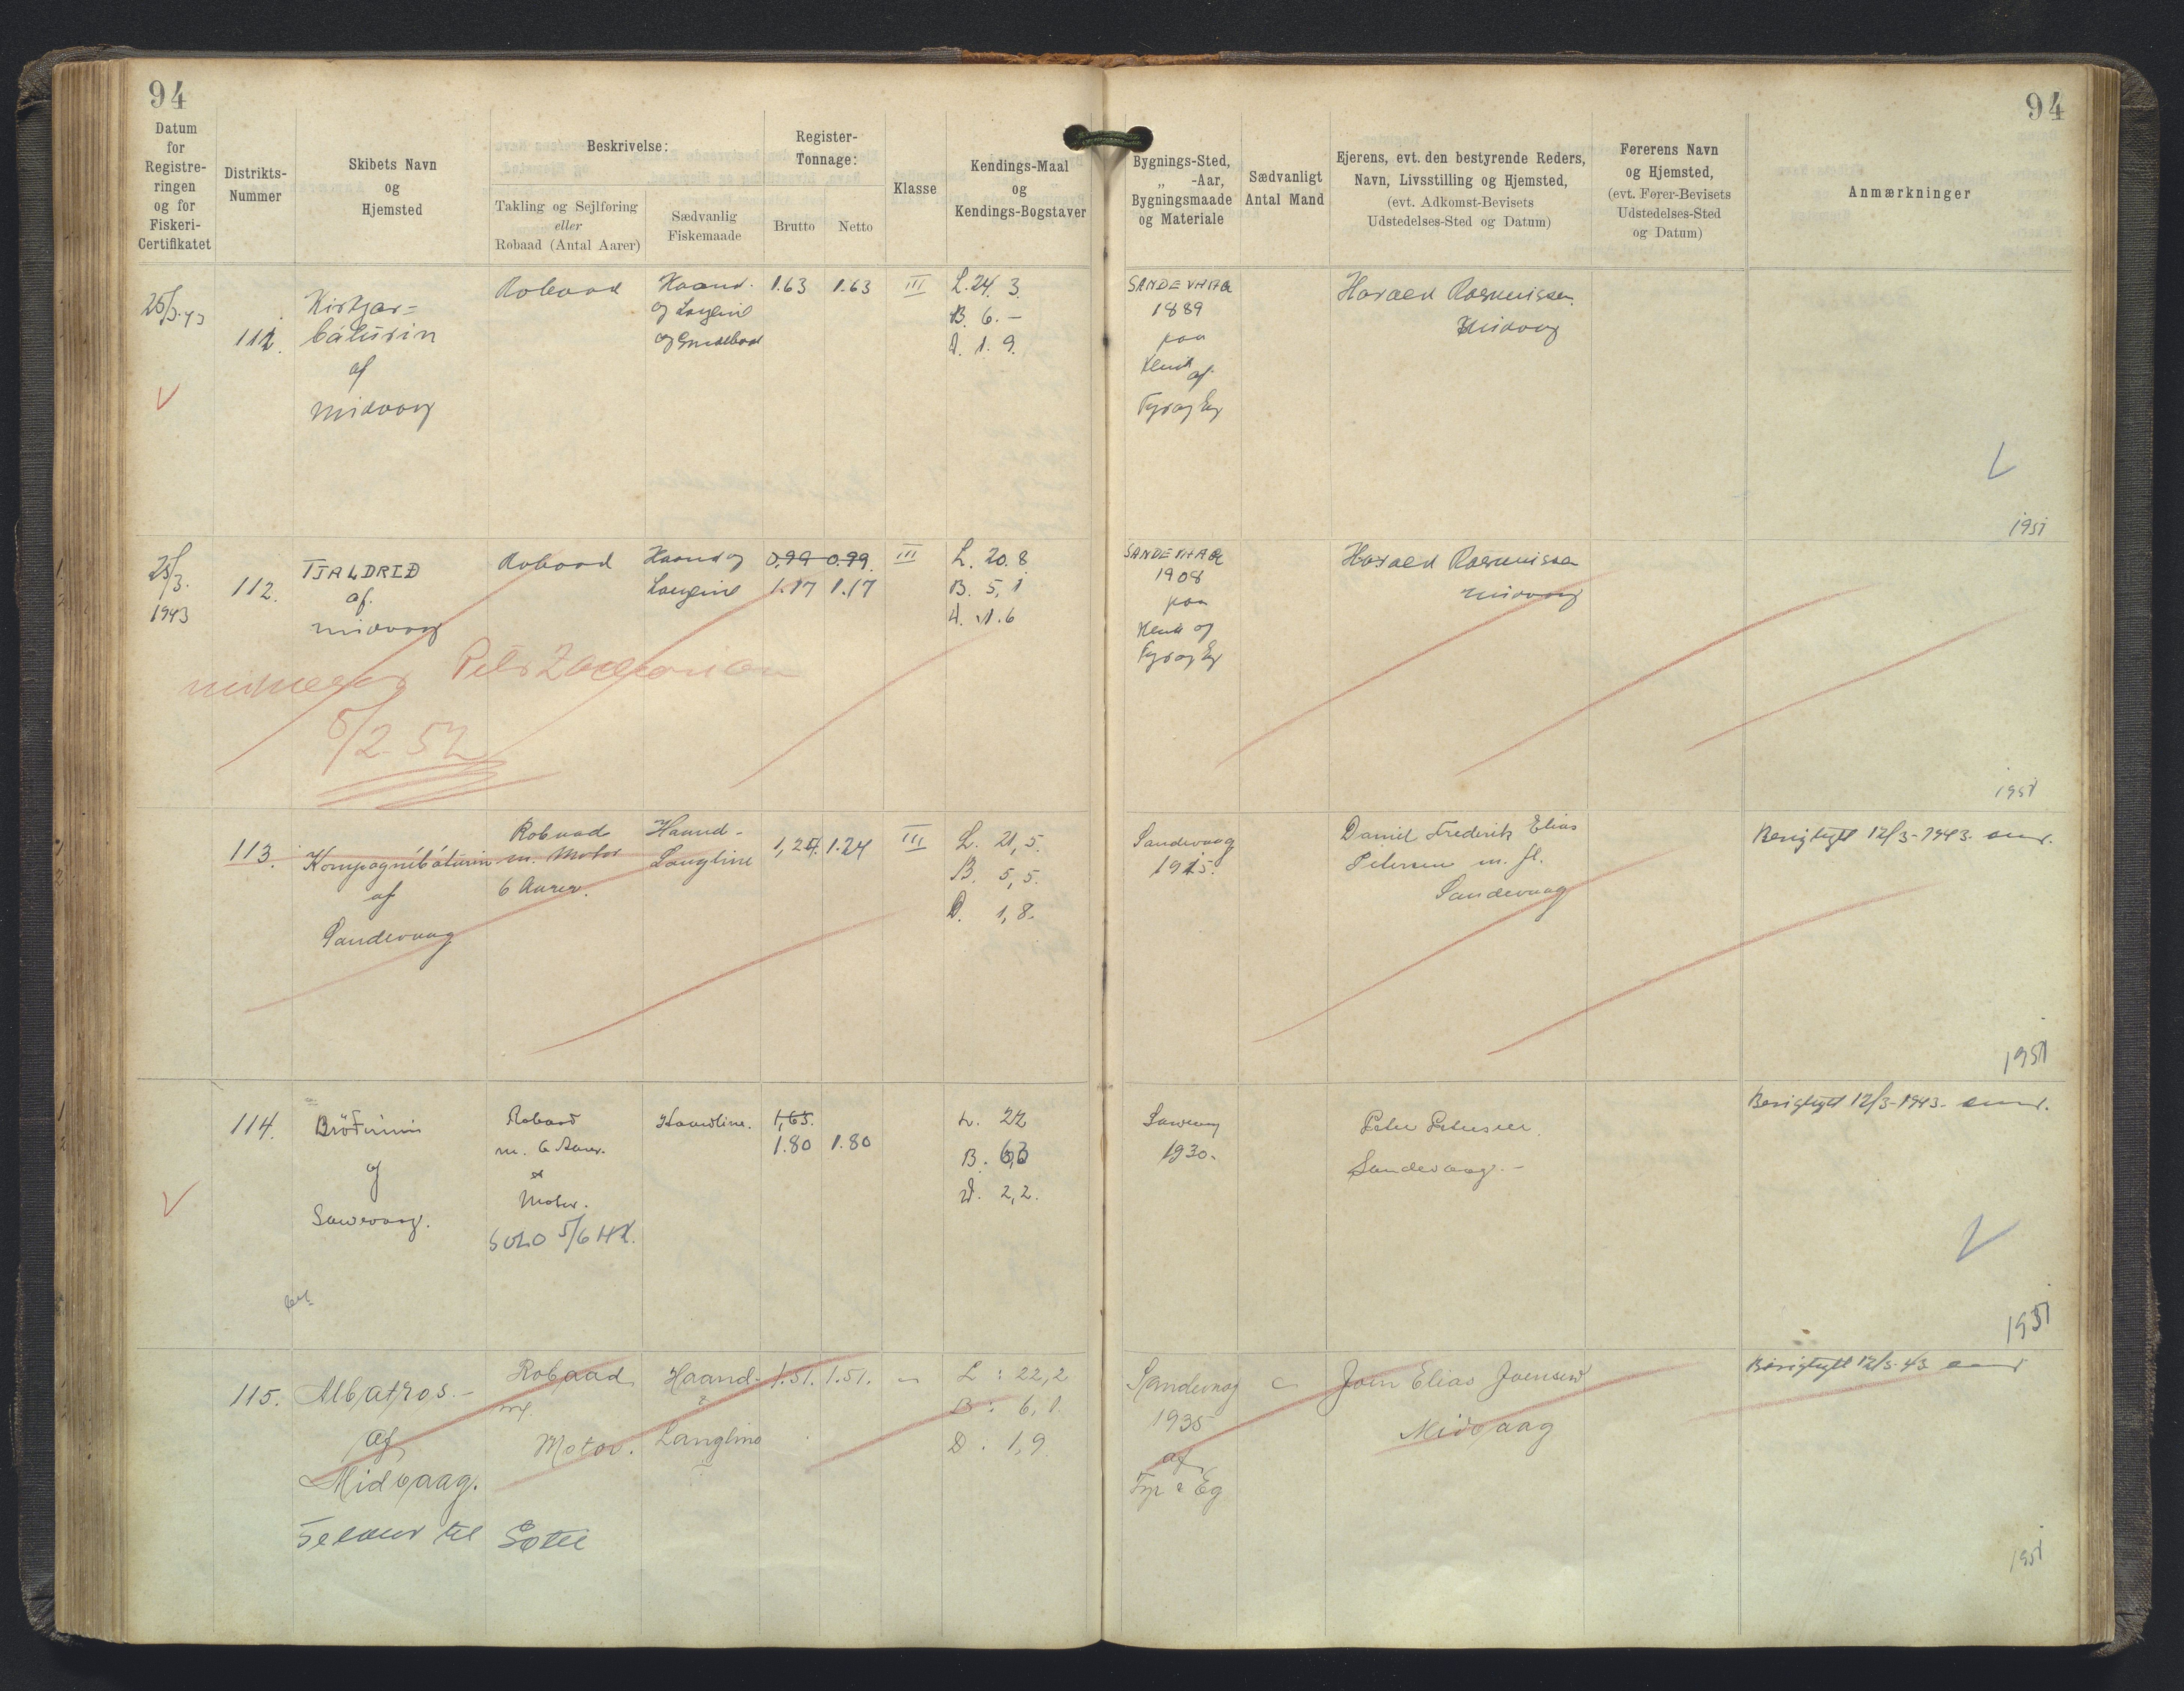 94
94
Datum
for
Registre-
ringen
og for
Fiskeri-
Certifikatet
Distrikts-
Nummer
Skibets Navn
og
Hjemsted
Beskrivelse:
Takling og Sejlføring
eller
Robaad (Antal Aarer)
Sædvanlig
Fiskemaade
Register-
Tonnage:
Brutto
Netto
Klasse
Kendings-Maal
og
Kendings-Bogstaver
Bygnings-Sted,
„ -Aar,
Bygningsmaade
og Materiale
Sædvanligt
Antal Mand
Ejerens, evt. den bestyrende Reders,
Navn, Livsstilling og Hjemsted,
(evt. Adkomst-Bevisets
Udstedelses-Sted og Datum)
Førerens Navn
og Hjemsted,
(evt. Fører-Bevisets
Udstedelses-Sted
og Datum)
Anmærkninger
25/3.43
111.
Kirkjar=
báturin
af
Midvaag
Robaad
Haand.
og Langline
1.63 1.63 III
L. 24. 3.
B. 6. –
D. 1. 9.
SANDEVAAG
1889
paa
Klink
af
Fyr og Eg
Harald Rasmussen
Midvaag
1951
25/3.
1943
112.
TJALDRIÐ
af.
Midvaag
Robaad
Haand og
Langline
0,99 0.99.
1.17 1.17
III
L. 20. 8
B. 5, 1
D. 1. 6
SANDEVAAG
1908
paa
Klink og
Fyr og Eg
Harald Rasmussen
Midvaag
5/2 52
1951
113.
Kompagníbáturin
af
Sandevaag
Robaad
m. Motor
6 Aarer.
Haand-
Langline
1,24. 1.24 III
L. 21,5.
B. 5,5.
D. 1,8.
Sandevaag
1915.
Daniel Frederik Elias
Petersen m. fl.
Sandevaag
Berigtiget 12/3-1943.
1951
114.
af
Robaad
m. 6 Aarer.
Motor.
SOLO 5/6 HK.
Haandline.
1,65.
1.80 1.80
L. 22
B. 6,3
D. 2,2.
1930.
Peter Petersen
Sandevaag. –
Berigtiget 12/3-1943.
1951
115.
Albatros. –
af
Midvaag.
Robaad
m/
Motor.
Haand-
&
Langline
1.51. 1.51.
L : 22,2
B : 6,1.
D . 1,9
Sandevaag
1935
af
Fyr & Eg
Joen Elias Joensen
Midvaag
Berigtiget 12/3.43
1951